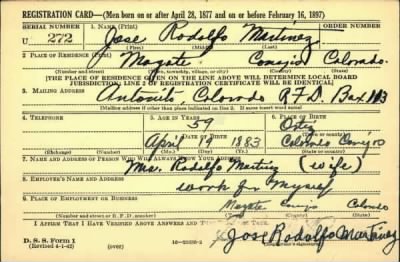 REGISTRATION CARD—(Men born on or after April 28, 1877 and on or before February 16, 1897)
SERIAL NUMBER 1. NAME (Print) ORDER NUMBER
U 272 Jose Rodolfo Martinez
(First) (Middle) (Last)
2. PLACE OF RESIDENCE (Print)
Mogote Conejos Colorado.
(Number and street) (Town, township, village, or city) (County) (State)
[THE PLACE OF RESIDENCE GIVEN ON THE LINE ABOVE WILL DETERMINE LOCAL BOARD
JURISDICTION; LINE 2 OF REGISTRATION CERTIFICATE WILL BE IDENTICAL]
3. MAILING ADDRESS
Antonito Colorado R.F.D. Box 113
[Mailing address if other than place indicated on line 2. If same insert word same]
4. TELEPHONE 5. AGE IN YEARS 6. PLACE OF BIRTH
59 Ortiz
DATE OF BIRTH
April 19 1883 Colorado Conejos
(Exchange) (Number) (Mo.) (Day) (Yr.) (Town or county) (State or country)
7. NAME AND ADDRESS OF PERSON WHO WILL ALWAYS KNOW YOUR ADDRESS
Mrs. Rodolfo Martinez (wife)
8. EMPLOYER'S NAME AND ADDRESS
Work for Myself
9. PLACE OF EMPLOYMENT OR BUSINESS
Mogote Conejos Colorado
(Number and street or R. F. D. number) (Town) (County) (State)
I AFFIRM THAT I HAVE VERIFIED ABOVE ANSWERS AND THAT THEY ARE TRUE.
D. S. S. Form 1
(Revised 4-1-42) (over) Jose Rodolfo Martinez